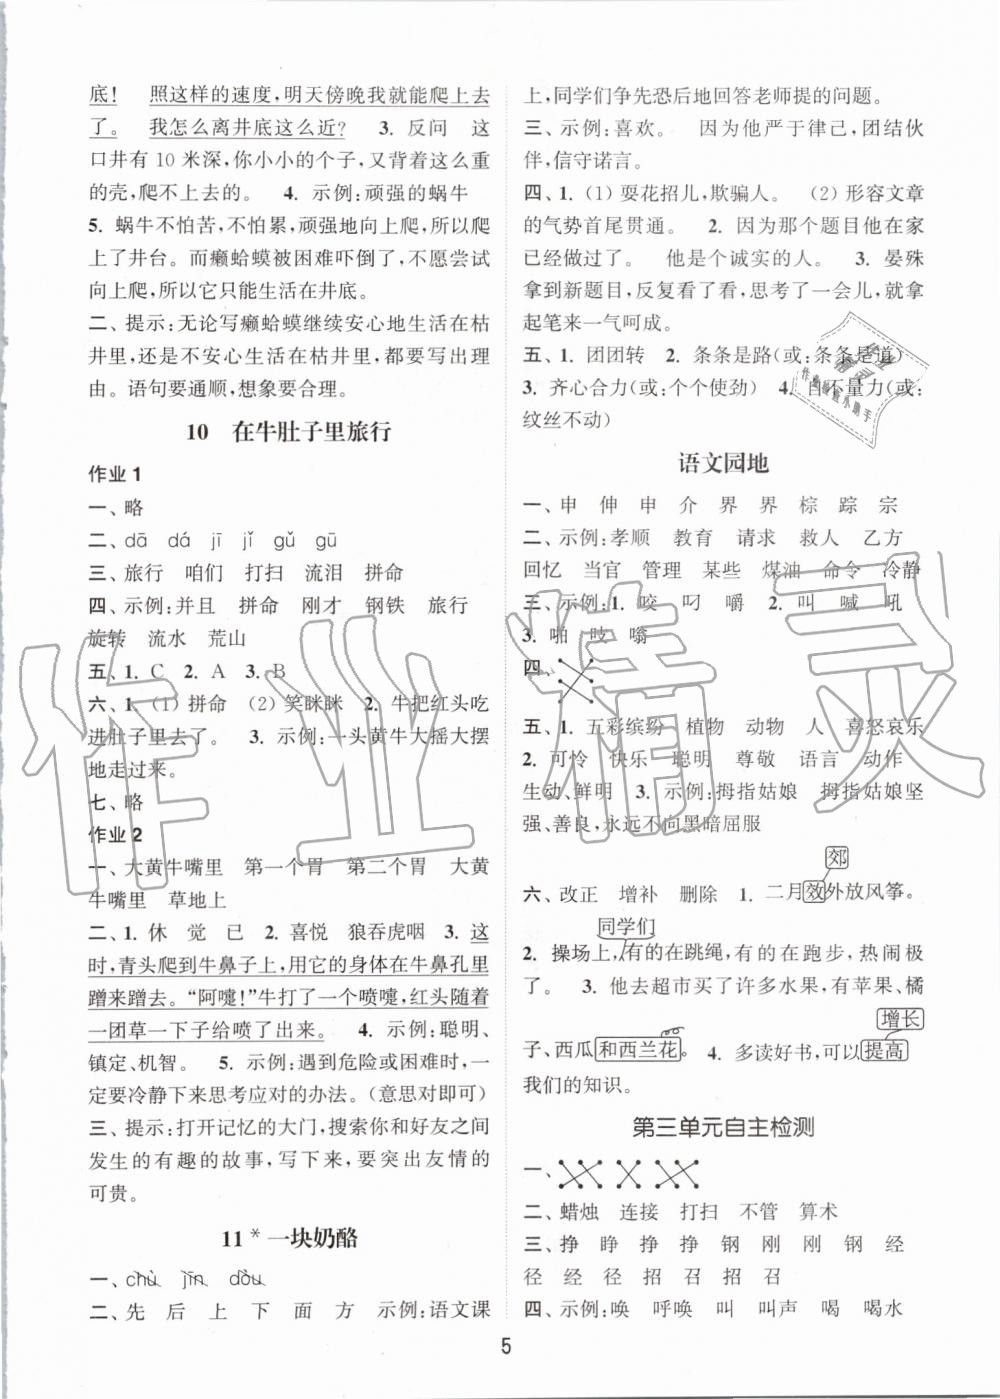 底！ 照这样的速度，明天傍晚我就能爬上去
了。 我怎么离井底这么近？ 3. 反问 这
口井有 10 米深，你小小的个子，又背着这么重
的壳，爬不上去的。 4. 示例：顽强的蜗牛
5. 蜗牛不怕苦，不怕累，顽强地向上爬，所以爬
上了井台。而癞蛤蟆被困难吓倒了，不愿尝试
向上爬，所以它只能生活在井底。
二、提示：无论写癞蛤蟆继续安心地生活在枯
井里，还是不安心生活在枯井里，都要写出理
由。语句要通顺，想象要合理。
10 在牛肚子里旅行
作业 1
一、略
二、dā dá jī jǐ gǔ gū
三、旅行 咱们 打扫 流泪 拼命
四、示例：并且 拼命 刚才 钢铁 旅行
旋转 流水 荒山
五、1. C 2. A 3. B
六、1.（1）拼命 （2）笑眯眯 2. 牛把红头吃
进肚子里去了。 3. 示例：一头黄牛大摇大摆
地走过来。
七、略
作业 2
一、大黄牛嘴里 第一个胃 第二个胃 大黄
牛嘴里 草地上
二、1. 休 觉 已 2. 喜悦 狼吞虎咽 3. 这
时，青头爬到牛鼻子上，用它的身体在牛鼻孔里
蹭来蹭去。“阿嚏！”牛打了一个喷嚏，红头随着
一团草一下子给喷了出来。 4. 示例：聪明、
镇定、机智。 5. 示例：遇到危险或困难时，一
定要冷静下来思考应对的办法。（意思对即可）
三、提示：打开记忆的大门，搜索你和好友之间
发生的有趣的故事，写下来，要突出友情的
可贵。
11 * 一块奶酪
一、chù jīn dòu
二、先 后 上 下 面 方 示例：语文课
上，同学们争先恐后地回答老师提的问题。
三、示例：喜欢。 因为他严于律己，团结伙
伴，信守诺言。
四、1.（1）耍花招儿，欺骗人。 （2）形容文章
的气势首尾贯通。 2. 因为那个题目他在家
已经做过了。 他是个诚实的人。 3. 晏殊
拿到新题目，反复看了看，思考了一会儿，就拿
起笔来一气呵成。
五、1. 团团转 2. 条条是路（或：条条是道）
3. 齐心合力（或：个个使劲） 4. 自不量力（或：
纹丝不动）
语文园地
一、申 伸 申 介 界 界 棕 踪 宗
二、示例：孝顺 教育 请求 救人 乙方
回忆 当官 管理 某些 煤油 命令 冷静
三、示例：1. 咬 叼 嚼 2. 叫 喊 吼
3. 啪 吱 嗡
四、
五、1. 五彩缤纷 植物 动物 人 喜怒哀乐
2. 可怜 快乐 聪明 尊敬 语言 动作
生动、鲜明 3. 示例：拇指姑娘 拇指姑娘坚
强、善良，永远不向黑暗屈服
郊
六、改正 增补 删除 1. 二月效外放风筝。
同学们
2. 操场上，有的在跳绳，有的在跑步，热闹极
了。 3. 他去超市买了许多水果，有苹果、橘
增长
子、西瓜和西兰花。 4. 多读好书，可以提高
我们的知识。
第三单元自主检测
一、
二、蜡烛 连接 打扫 不管 算术
三、挣 睁 挣 挣 钢 刚 刚 钢 经
径 经 径 招 召 招 召
四、示例：唤 呼唤 叫 叫声 喝 喝水
5
作业精灵